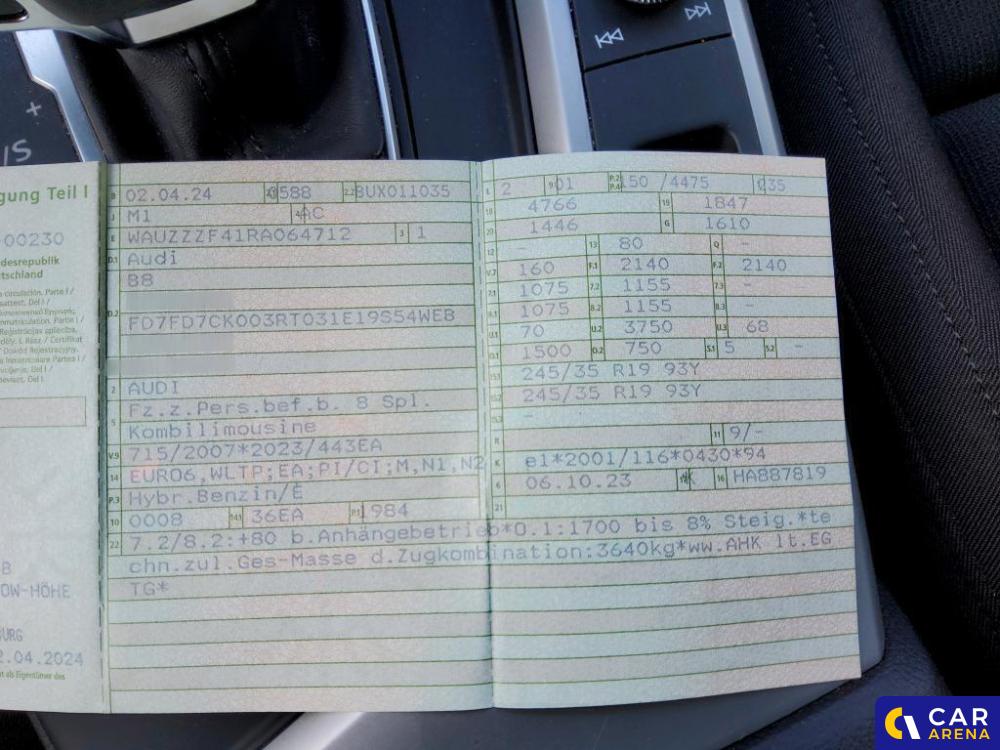 +
/S
gung Teil I
-00230
desrepublik
tschland
B
OW-HÖHE
URG
2.04.2024
B 02.04.24 2.1 0588 2.2 BUX011035
J M1 4 AC
E WAUZZZF41RA064712 3 1
D.1 Audi
B8
D.2
FD7FD7CK003RT031E19S54WEB
2 AUDI
5 Fz.z.Pers.bef.b. 8 Spl.
Kombilimousine
V.9 715/2007*2023/443EA
14 EURO6,WLTP;EA;PI/CI;M,N1,N2
P.3 Hybr.Benzin/E
10 0008 14.1 36EA P.1 1984
L 2 9 01 P.2 P.4 150 /4475 T 235
18 4766 19 1847
20 1446 G 1610
12 - 13 80 Q -
V.7 160 F.1 2140 F.2 2140
7.1 1075 7.2 1155 7.3 -
8.1 1075 8.2 1155 8.3 -
U.1 70 U.2 3750 U.3 68
O.1 1500 O.2 750 S.1 5 S.2 -
15.1 245/35 R19 93Y
15.2 245/35 R19 93Y
15.3 -
R 11 9/-
K e1*2001/116*0430*94
6 06.10.23 17 K 16 HA887819
21
22 7.2/8.2:+80 b.Anhängebetrieb*O.1:1700 bis 8% Steig.*te
chn.zul.Ges-Masse d.Zugkombination:3640kg*ww.AHK lt.EG
TG*
CAR
ARENA